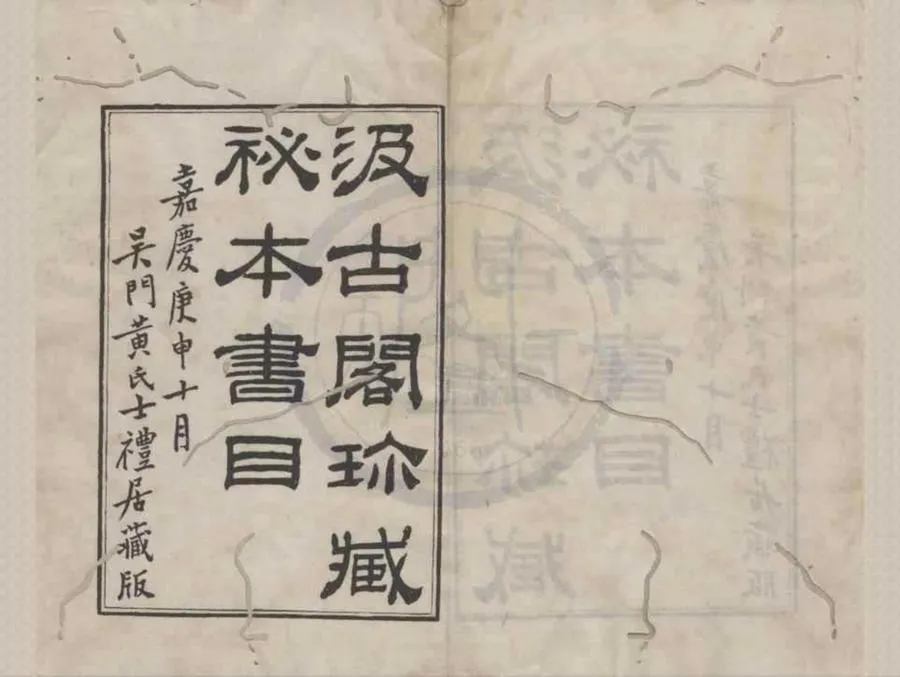 汲古閣珎藏
祕本書目
嘉慶庚申十月
吴門黃氏士禮居藏版